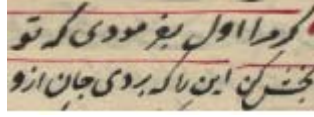 کرم را اول بفرمودی که تو
بخش کن این را که بردی جان ازو